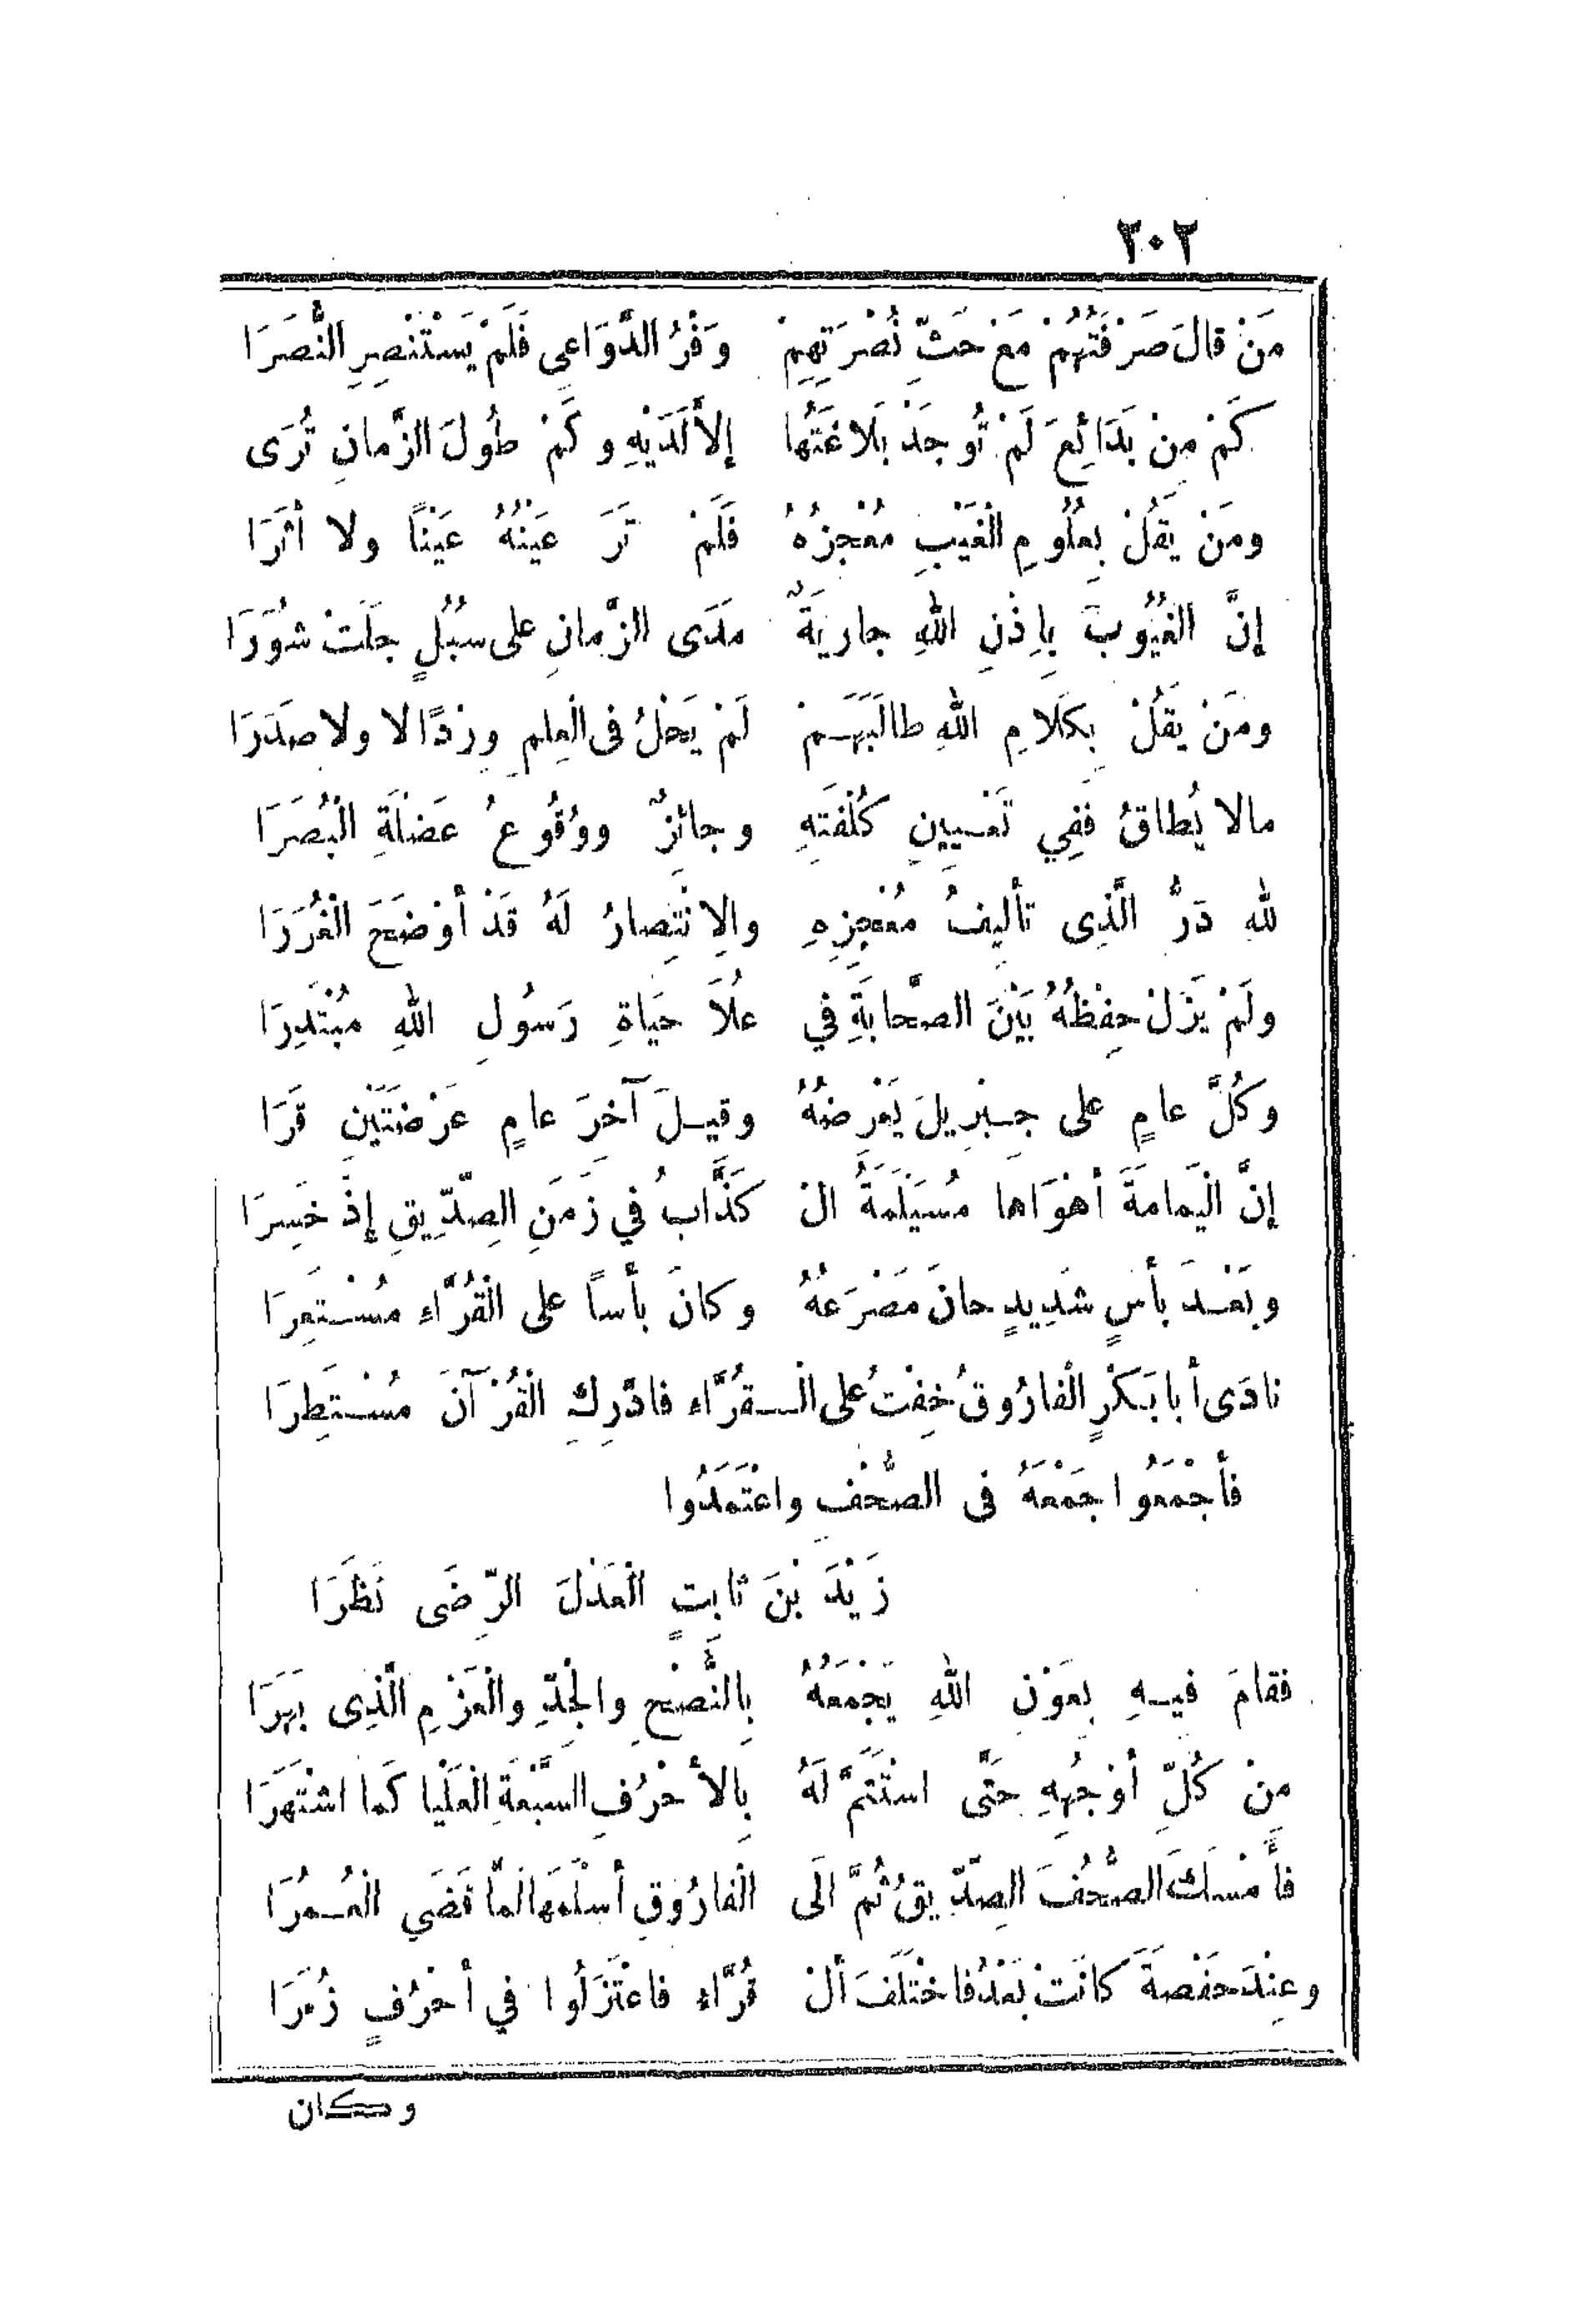 ٢٠٢
مَنْ قالَ صَرْفَتُهُمْ مَعْ حَثِّ نُصْرَتِهِمْ وَفْرُ الدَّوَاعِى فَلَمْ يَسْتَنْصِرِ النُّصَرَا
كَمْ مِنْ بَدَائِعَ لَمْ تُوجَدْ بَلَاغَتُها إلاَّ لَدَيْهِ وكَمْ طُولَ الزَّمانِ تُرَى
ومَنْ يَقُلْ بِعُلُومِ الْغَيْبِ مُعْجِزُهُ فَلَمْ تَرَ عَيْنُهُ عَيْناً ولا أثَرَا
إنَّ الغُيُوبَ بِإِذْنِ اللهِ جارِيَةٌ مَدَى الزَّمانِ على سُبُلٍ جَلَتْ سُوَرَا
ومَنْ يَقُلْ بِكَلَامِ اللهِ طالَبَهُمْ لَمْ يَحْلُ فى العِلْمِ وِرْدًا لا ولا صَدَرَا
مالا يُطاقُ فَفِي تَعْيِينِ كُلْفَتِهِ وجائِزٌ ووُقُوعُ عَضْلَةِ الْبُصَرَا
للهِ دَرُّ الَّذِى تأليفُ مُعْجِزِهِ والِانْتِصارُ لَهُ قَدْ أوْضَحَ الْغُرَرَا
ولَمْ يَزَلْ حِفْظُهُ بَيْنَ الصَّحابَةِ في عُلَا حَيَاةِ رَسُولِ اللهِ مُبْتَدِرَا
وكُلَّ عامٍ على جِبْرِيلَ يَعْرِضُهُ وقيلَ آخِرَ عامٍ عَرْضَتَيْنِ قَرَا
إنَّ الْيَمامَةَ أهْوَاها مُسَيْلَمَةُ الْ كَذَّابُ في زَمَنِ الصِّدِّيقِ إذْ خَسِرَا
وبَعْدَ بأْسٍ شَدِيدٍ حانَ مَصْرَعُهُ وكانَ بأساً على الْقُرَّاءِ مُسْتَعِرَا
نادَى أبا بَكْرٍ الْفارُوقُ خِفْتُ على الْقُرَّاء فادَّرِكِ الْقُرْآنَ مُسْتَطِرَا
فأجْمَعُوا جَمْعَهُ فى الصُّحْفِ واعْتَمَدُوا
زَيْدَ بْنَ ثابِتٍ الْعَدْلَ الرِّضَى نَظَرَا
فقامَ فيهِ بِعَوْنِ اللهِ يَجْمَعُهُ بِالنُّصْحِ والْجِدِّ والْعَزْمِ الَّذِى بَهَرَا
مِنْ كُلِّ أوْجُهِهِ حَتَّى اسْتَتَمَّ لَهُ بِالأَحْرُفِ السَّبْعَةِ الْعَلْيا كَما اشْتَهَرَا
فأَمْسَكَ الصُّحُفَ الصِّدِّيقُ ثُمَّ الَى الْفارُوقِ أسْلَمَها لَمَّا قَضَى الْعُمُرَا
وعِنْدَ حَفْصَةَ كانَتْ بَعْدُ فاخْتَلَفَ ألْ قُرَّاءِ فاعْتَزَلُوا في أحْرُفٍ زُمَرَا
وكان